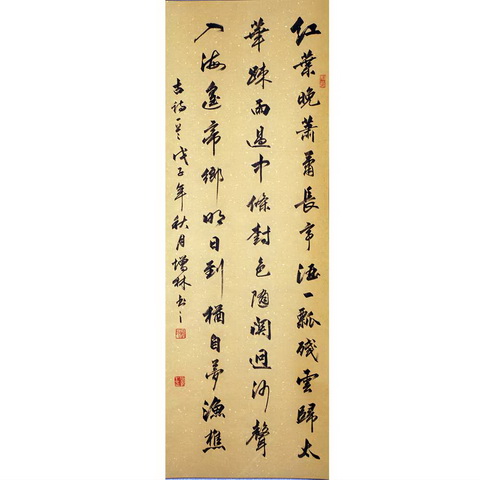 红葉晚萧蕭長亭酒一瓢殘雲歸太
華踈雨過中條樹色隨關迥河聲
入海遙帝鄉明日到猶自夢漁樵
古詩一首戊子年秋月增林书之